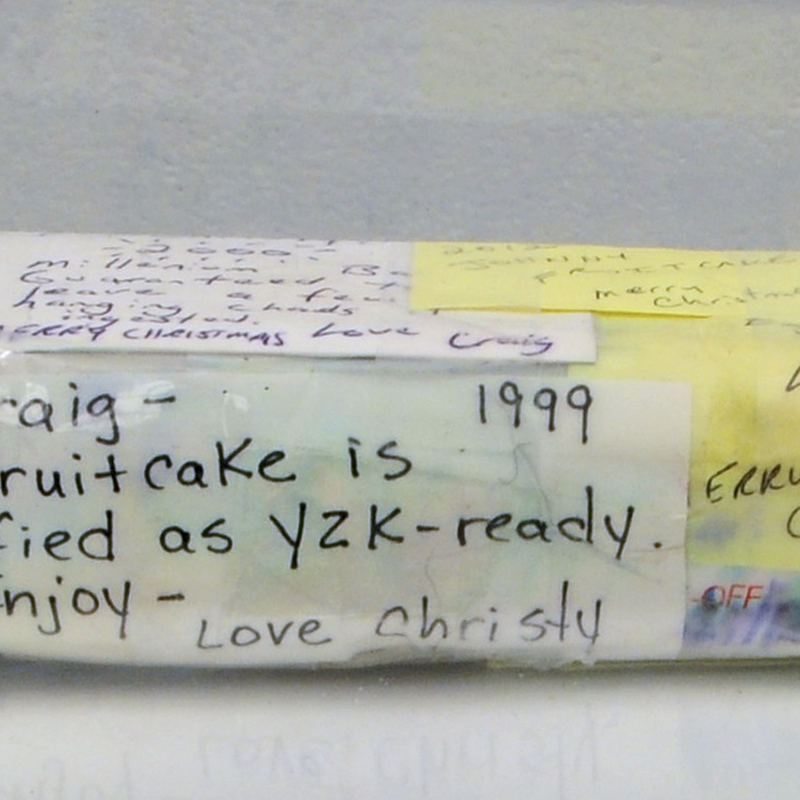 2000
Millenium B
Guaranteed
leave a few
hanging chads
ingested.
MERRY CHRISTMAS Love Craig
2012
JOHNNY
FRUITCAKE
merry
Christm
raig - 1999
ruitcake is
fied as Y2K-ready.
njoy -
Love Christy
ERRY
-OFF